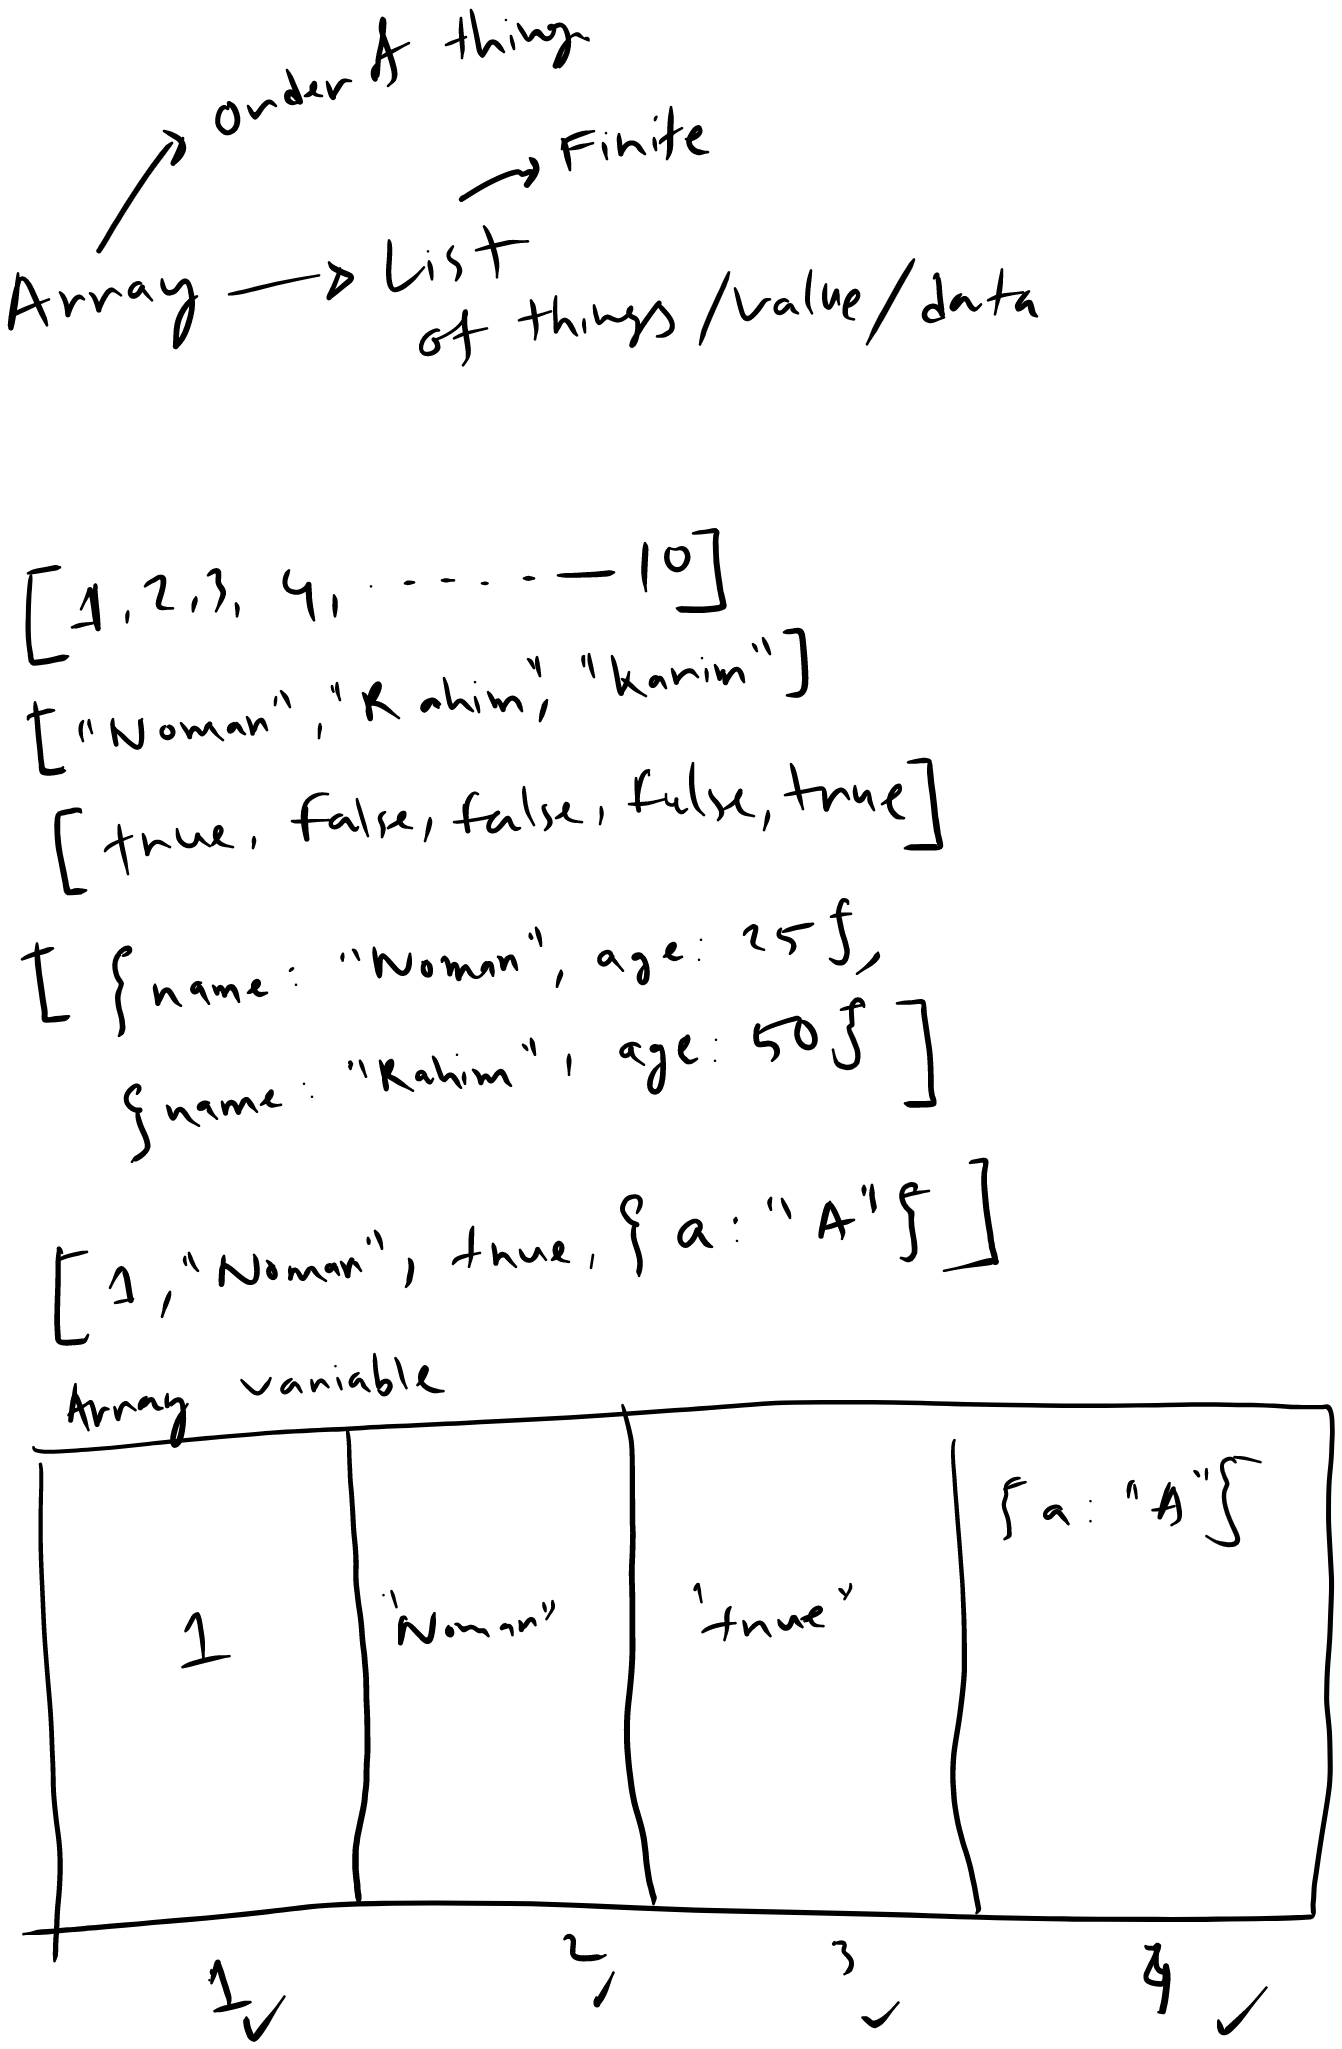 order A thing
Finite
Array → List
of things/value/data
[1, 2, 3, 4, . - - . - — 10]
["Noman", "Rahim", "Karim"]
[true, false, false, false, true]
[{name: "Noman", age: 25},
{name: "Rahim", age: 50}]
[1, "Noman", true, {a: "A"}]
Array variable
{a: "A"}
1 "Noman" "true"
1 2 3 4